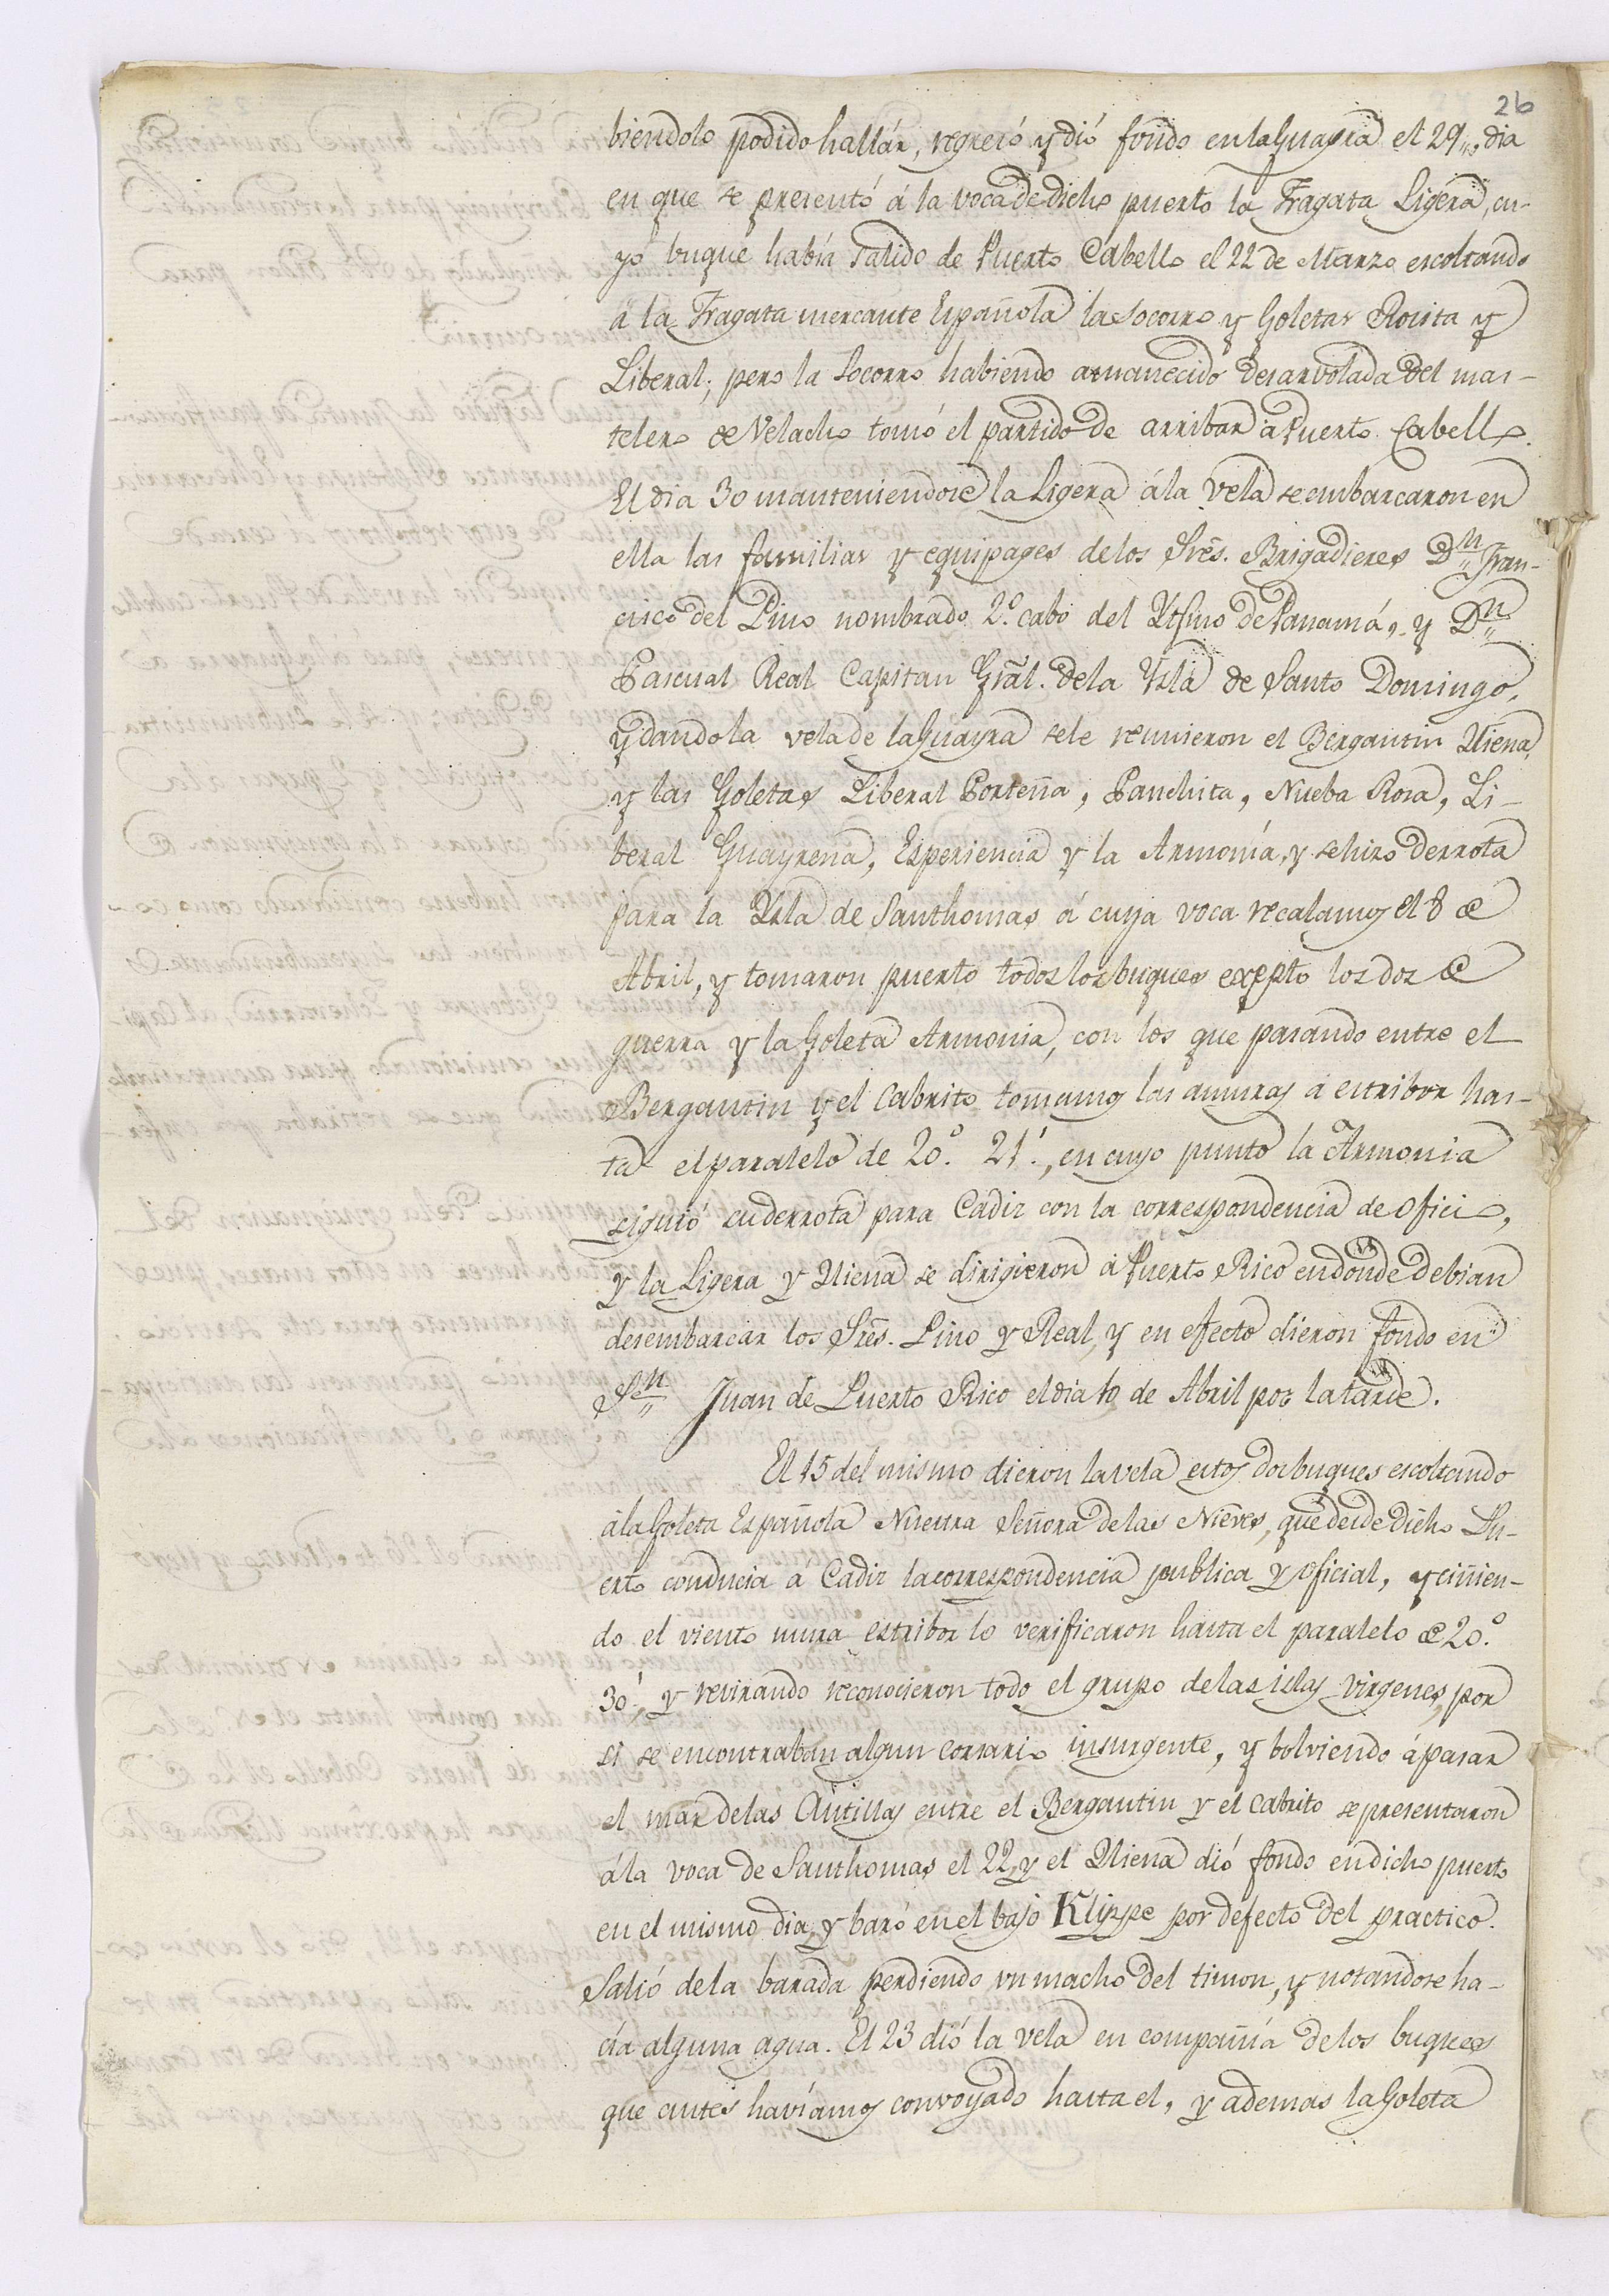 26
biendolo podido hallár, regresó y dió fondo en la Guayra el 29,, dia
en que se presentó á la voca de dicho puerto la Fragata Ligera, cu-
yo buque había salido de Puerto Cabello el 22 de Marzo escoltando
á la Fragata mercante Española la Socorro y Goletas Rosita y
Liberal; pero la Socorro habiendo amanecido desarvolada del mas-
telero de Velacho tomó el partido de arribar á Puerto Cabello.
El dia 30 manteniendose la Ligera á la vela se embarcaron en
ella las familias y equipages de los Srēs. Brigadieres Dn,, Fran-
cisco del Pino nombrado 2.º cabo del Ytsmo de Panamá, y Dn,,
Pascual Real Capitan Grāl. de la Ysla de Santo Domingo,
y dando la vela de la Guayra se le reunieron el Bergantin Hiena,
y las Goletas Liberal Porteña, Panchita, Nueba Rosa, Li-
beral Guayrena, Esperiencia y la Armonía, y se hizo derrota
para la Ysla de Santhomas á cuya voca recalamos el 8 de
Abril, y tomaron puerto todos los buques excepto los dos de
guerra y la Goleta Armonia, con los que pasando entre el
Bergantin y el Cabrito tomamos las amuras á estribor has-
ta el paralelo de 20.º 21', en cuyo punto la Armonia
siguió su derrota para Cadiz con la correspondencia de oficio,
y la Ligera y Hiena se dirigieron á Puerto Rico en donde debian
desembarcar los Srēs. Pino y Real, y en efecto dieron fondo en
Sn,, Juan de Puerto Rico el dia 10 de Abril por la tarde.
El 15 del mismo dieron la vela estos dos buques escoltando
á la Goleta Española Nuestra Señora de las Nieves, que desde dicho Pu-
erto conducia á Cadiz la correspondencia publica y oficial, y ciñien-
do el viento mura estribor lo verificaron hasta el paralelo de 20.º
30', y revirando reconocieron todo el grupo de las islas virgenes, por
si se encontraban algun corsario insurgente, y bolviendo á pasar
el mar de las Antillas entre el Bergantin y el Cabrito se presentaron
á la voca de Santhomas el 22, y el Hiena dió fondo en dicho puerto
en el mismo dia, y baró en el bajo Klippe por defecto del practico.
Salió de la barada perdiendo un macho del timon, y notandose ha-
cía alguna agua. El 23 dió la vela en compañía de los buques
que antes havíamos convoyado hasta el, y ademas la Goleta